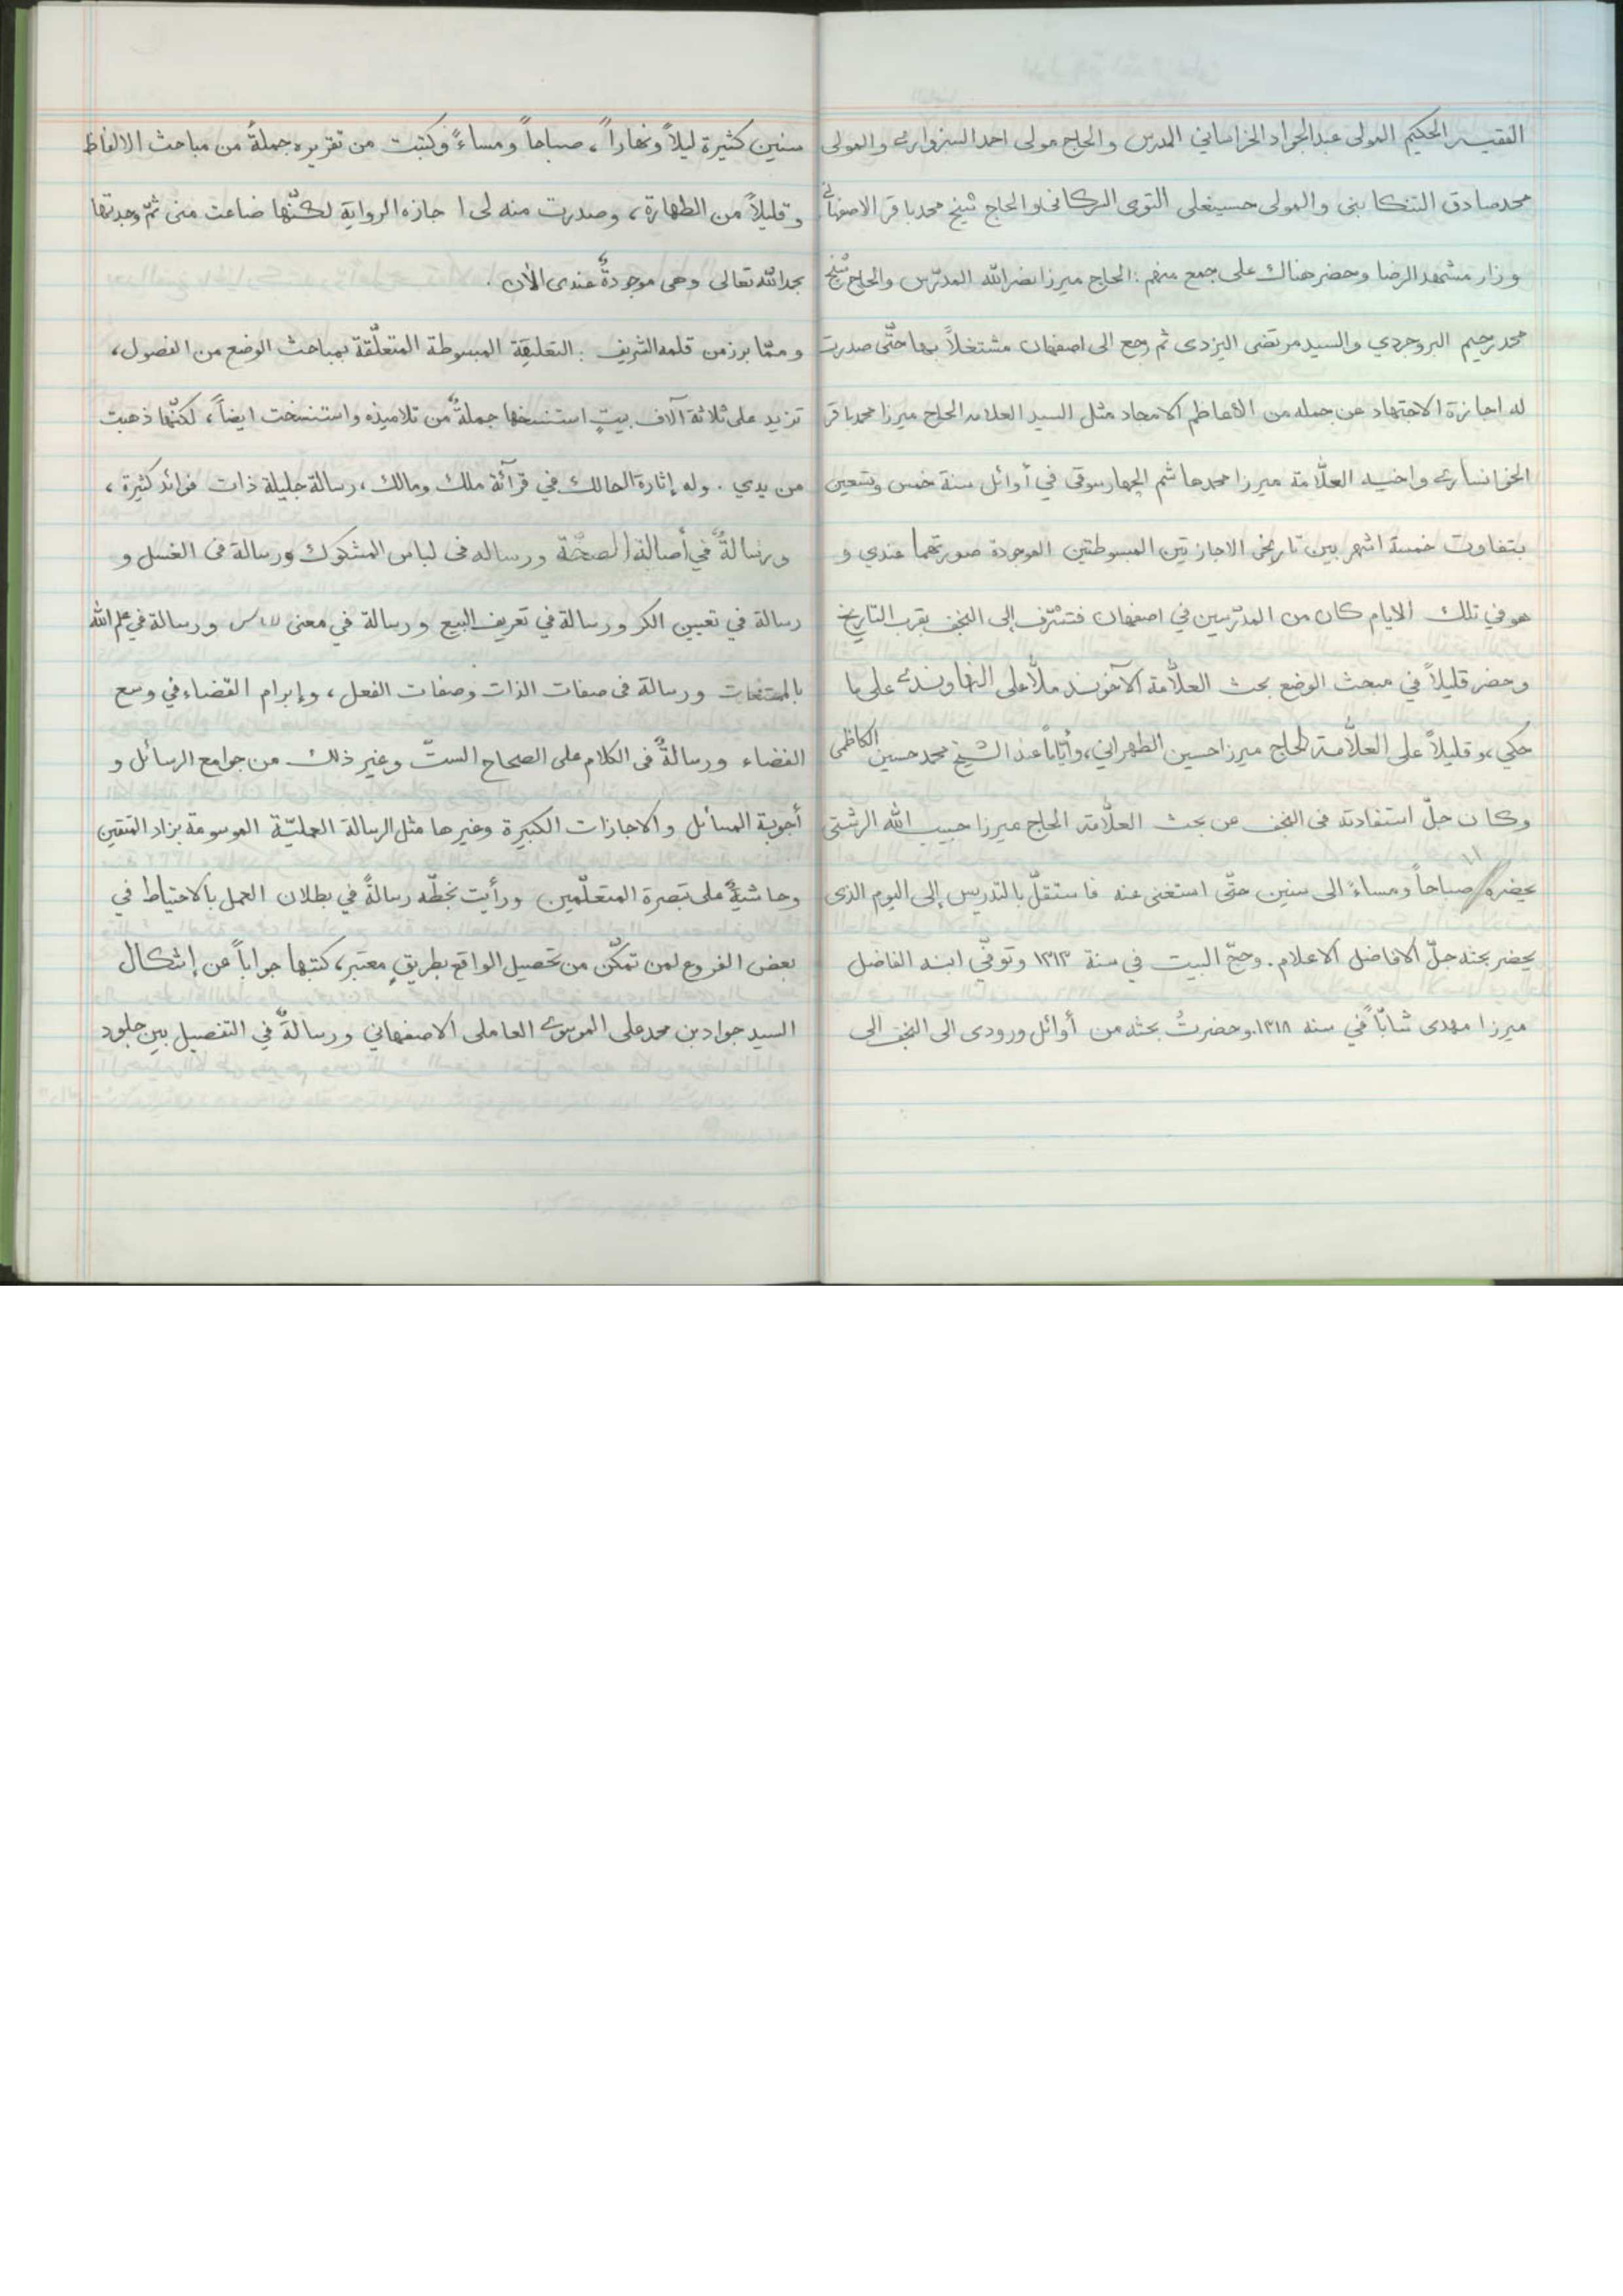 الفقيه الحكيم المولى عبدالجواد الخراساني المدرس والحاج مولى احمد السبزواری والمولى
محمدصادق التنكابنی والمولى حسينعلى التويسركانی والحاج شيخ محمدباقر الاصفهانی
وزار مشهد الرضا وحضر هناك على جمع منهم: الحاج ميرزا نصرالله المدرّس والحاج شيخ
محمدرحيم البروجردي والسيد مرتضى اليزدى ثم رجع الى اصفهان مشتغلاً بها حتّى صدرت
له اجازة الاجتهاد عن جمله من الأعاظم الامجاد مثل السيد العلامه الحاج ميرزا محمدباقر
الخوانساری واخيه العلّامة ميرزا محمدهاشم الچهارسوقی في أوائل سنة خمس وتسعين
بتفاوت خمسة اشهر بين تاريخی الاجازتين المبسوطتين الموجودة صورتهما عندي و
هو في تلك الايام كان من المدرّسين في اصفهان فتشرّف إلى النجف بقرب التاريخ
وحضر قليلاً في مبحث الوضع بحث العلّامة الآخوند ملّا على النهاوندی على ما
حكي، وقليلاً على العلّامة الحاج ميرزا حسين الطهراني، وأيّاماً عند الشيخ محمدحسين الكاظمى
وكان جلّ استفادته فى النجف من بحث العلّامة الحاج ميرزا حبيب الله الرشتي
يحضره صباحاً ومساءً الى سنين حتّى استغنى عنه فاستقلّ بالتدريس إلى اليوم الذى
يحضر بحثه جلّ الافاضل الاعلام. وحجّ البيت في سنة ١٣١٣ وتوفّي ابنه الفاضل
ميرزا مهدى شابّاً في سنه ١٣١٨. وحضرتُ بحثه من أوائل ورودى الى النجف الى
سنين كثيرة ليلاً ونهاراً، صباحاً ومساءً وكتبت من تقريره جملةً من مباحث الالفاظ
وقليلاً من الطهارة، وصدرت منه لى اجازه الرواية لكنّها ضاعت منى ثمّ وجدتها
بحمدالله تعالى وهى موجودةٌ عندى الأن.
وممّا برز من قلمه الشريف: التعليقة المبسوطة المتعلّقة بمباحث الوضع من الفصول،
تزيد على ثلاثة آلاف بيتٍ استنسخها جملةٌ من تلاميذه واستنسخت ايضاً، لكنّها ذهبت
من يدي. وله إثارة الحالك في قرآئة ملك ومالك، رسالة جليلة ذات فوائد كثيرة،
ورسالةٌ في أصالة الصحّة ورساله فى لباس المشكوك ورسالة فى الغسل و
رسالة في تعيين الكر ورسالة في تعريف البيع ورسالة في معنى ورسالة في علم الله
بالممتنعات ورسالة فى صفات الذات وصفات الفعل، وإبرام القضاء في وسع
الفضاء ورسالةٌ فى الكلام على الصحاح الستّ وغير ذلك من جوامع الرسائل و
أجوبة المسائل والاجازات الكبيرة وغيرها مثل الرسالة العمليّة الموسومة بزاد المتقين
وحاشيةٌ على تبصرة المتعلّمين ورأيت بخطّه رسالةً في بطلان العمل بالاحتياط في
بعض الفروع لمن تمكّن من تحصيل الواقع بطريقٍ معتبر، كتبها جواباً عن إشكال
السيد جواد بن محمدعلى الموسوی العاملى الاصفهاني ورسالةً في التفصيل بين جلود